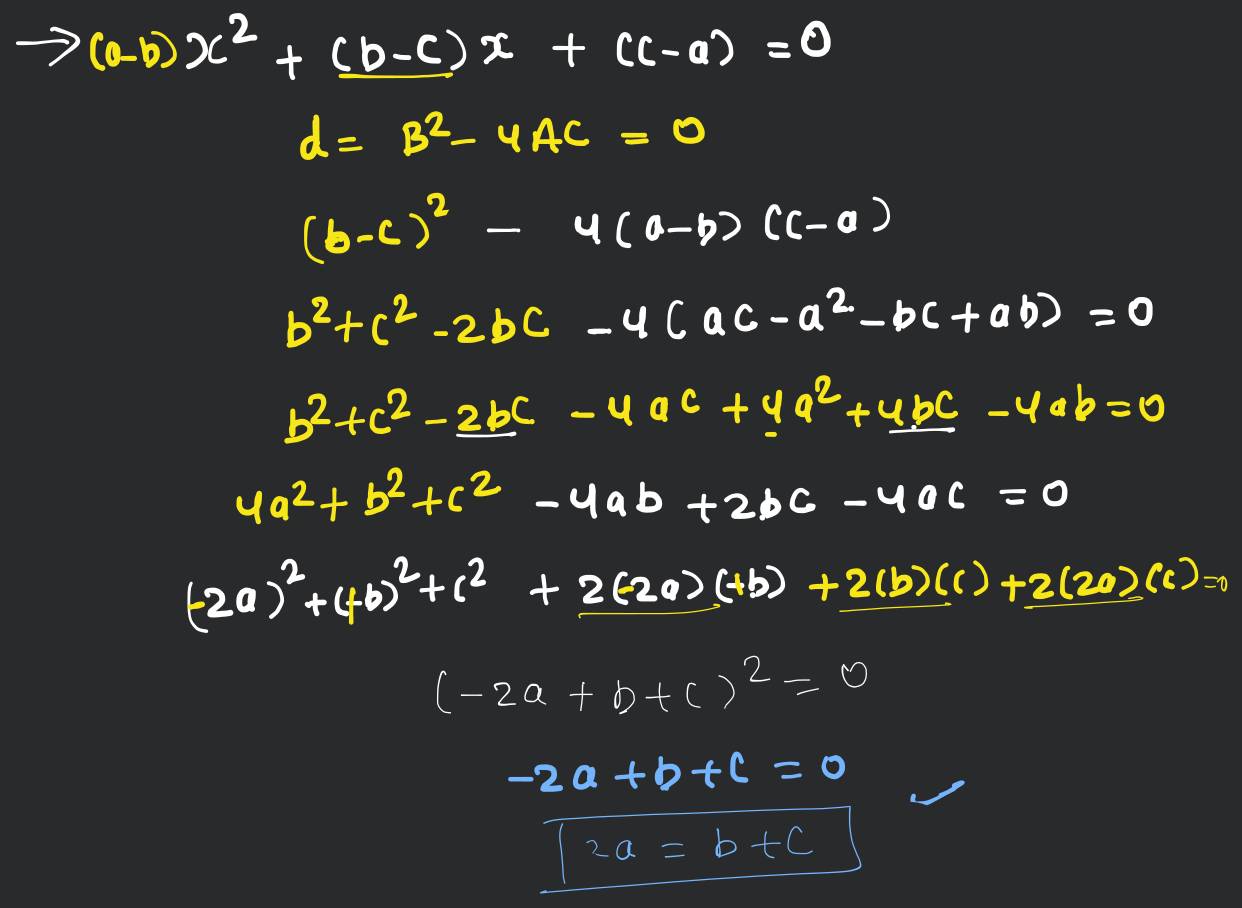 → (a-b)x² + (b-c)x + (c-a) = 0
d = B² - 4AC = 0
(b-c)² - 4(a-b)(c-a)
b²+c² -2bc -4(ac-a²-bc+ab) = 0
b²+c² -2bc -4ac +4a² +4bc -4ab=0
4a²+b²+c² -4ab +2bc -4ac = 0
(-2a)²+(+b)²+c² + 2(-2a)(+b) +2(b)(c)+2(2a)(c)=0
(-2a+b+c)² = 0
-2a+b+c = 0 ✓
2a = b+c